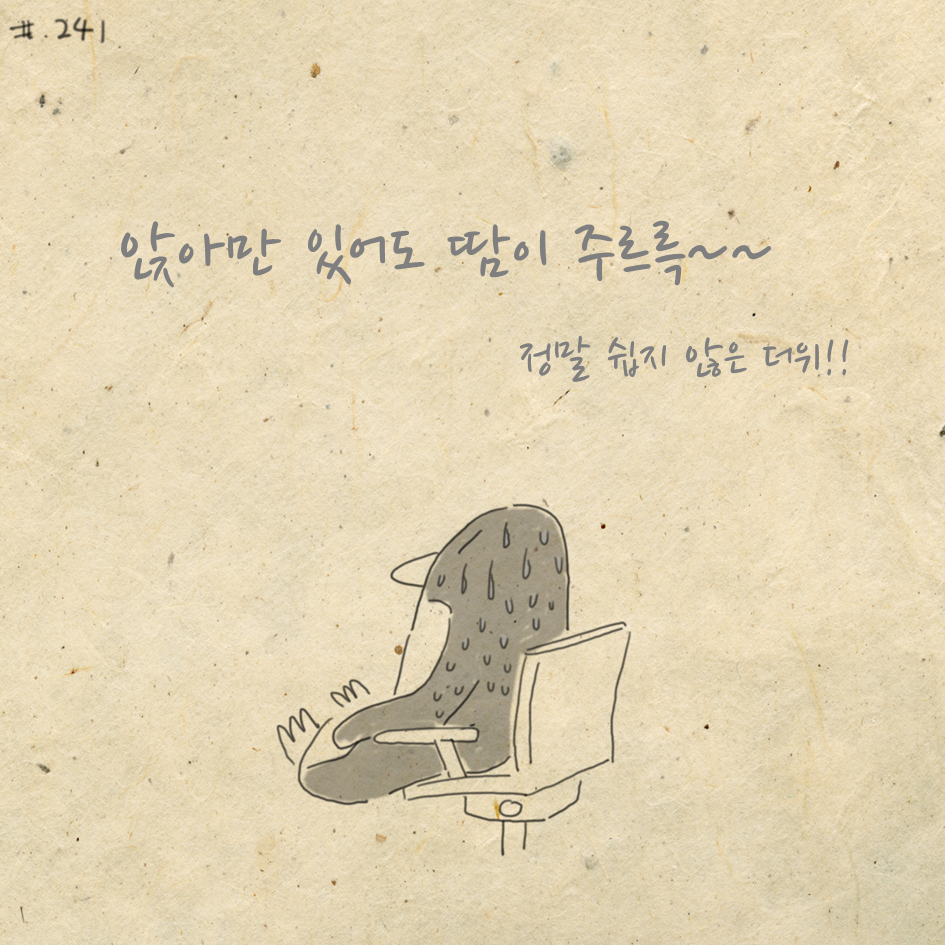 #.241
앉아만 있어도 땀이 주르륵~~
정말 쉽지 않은 더위!!